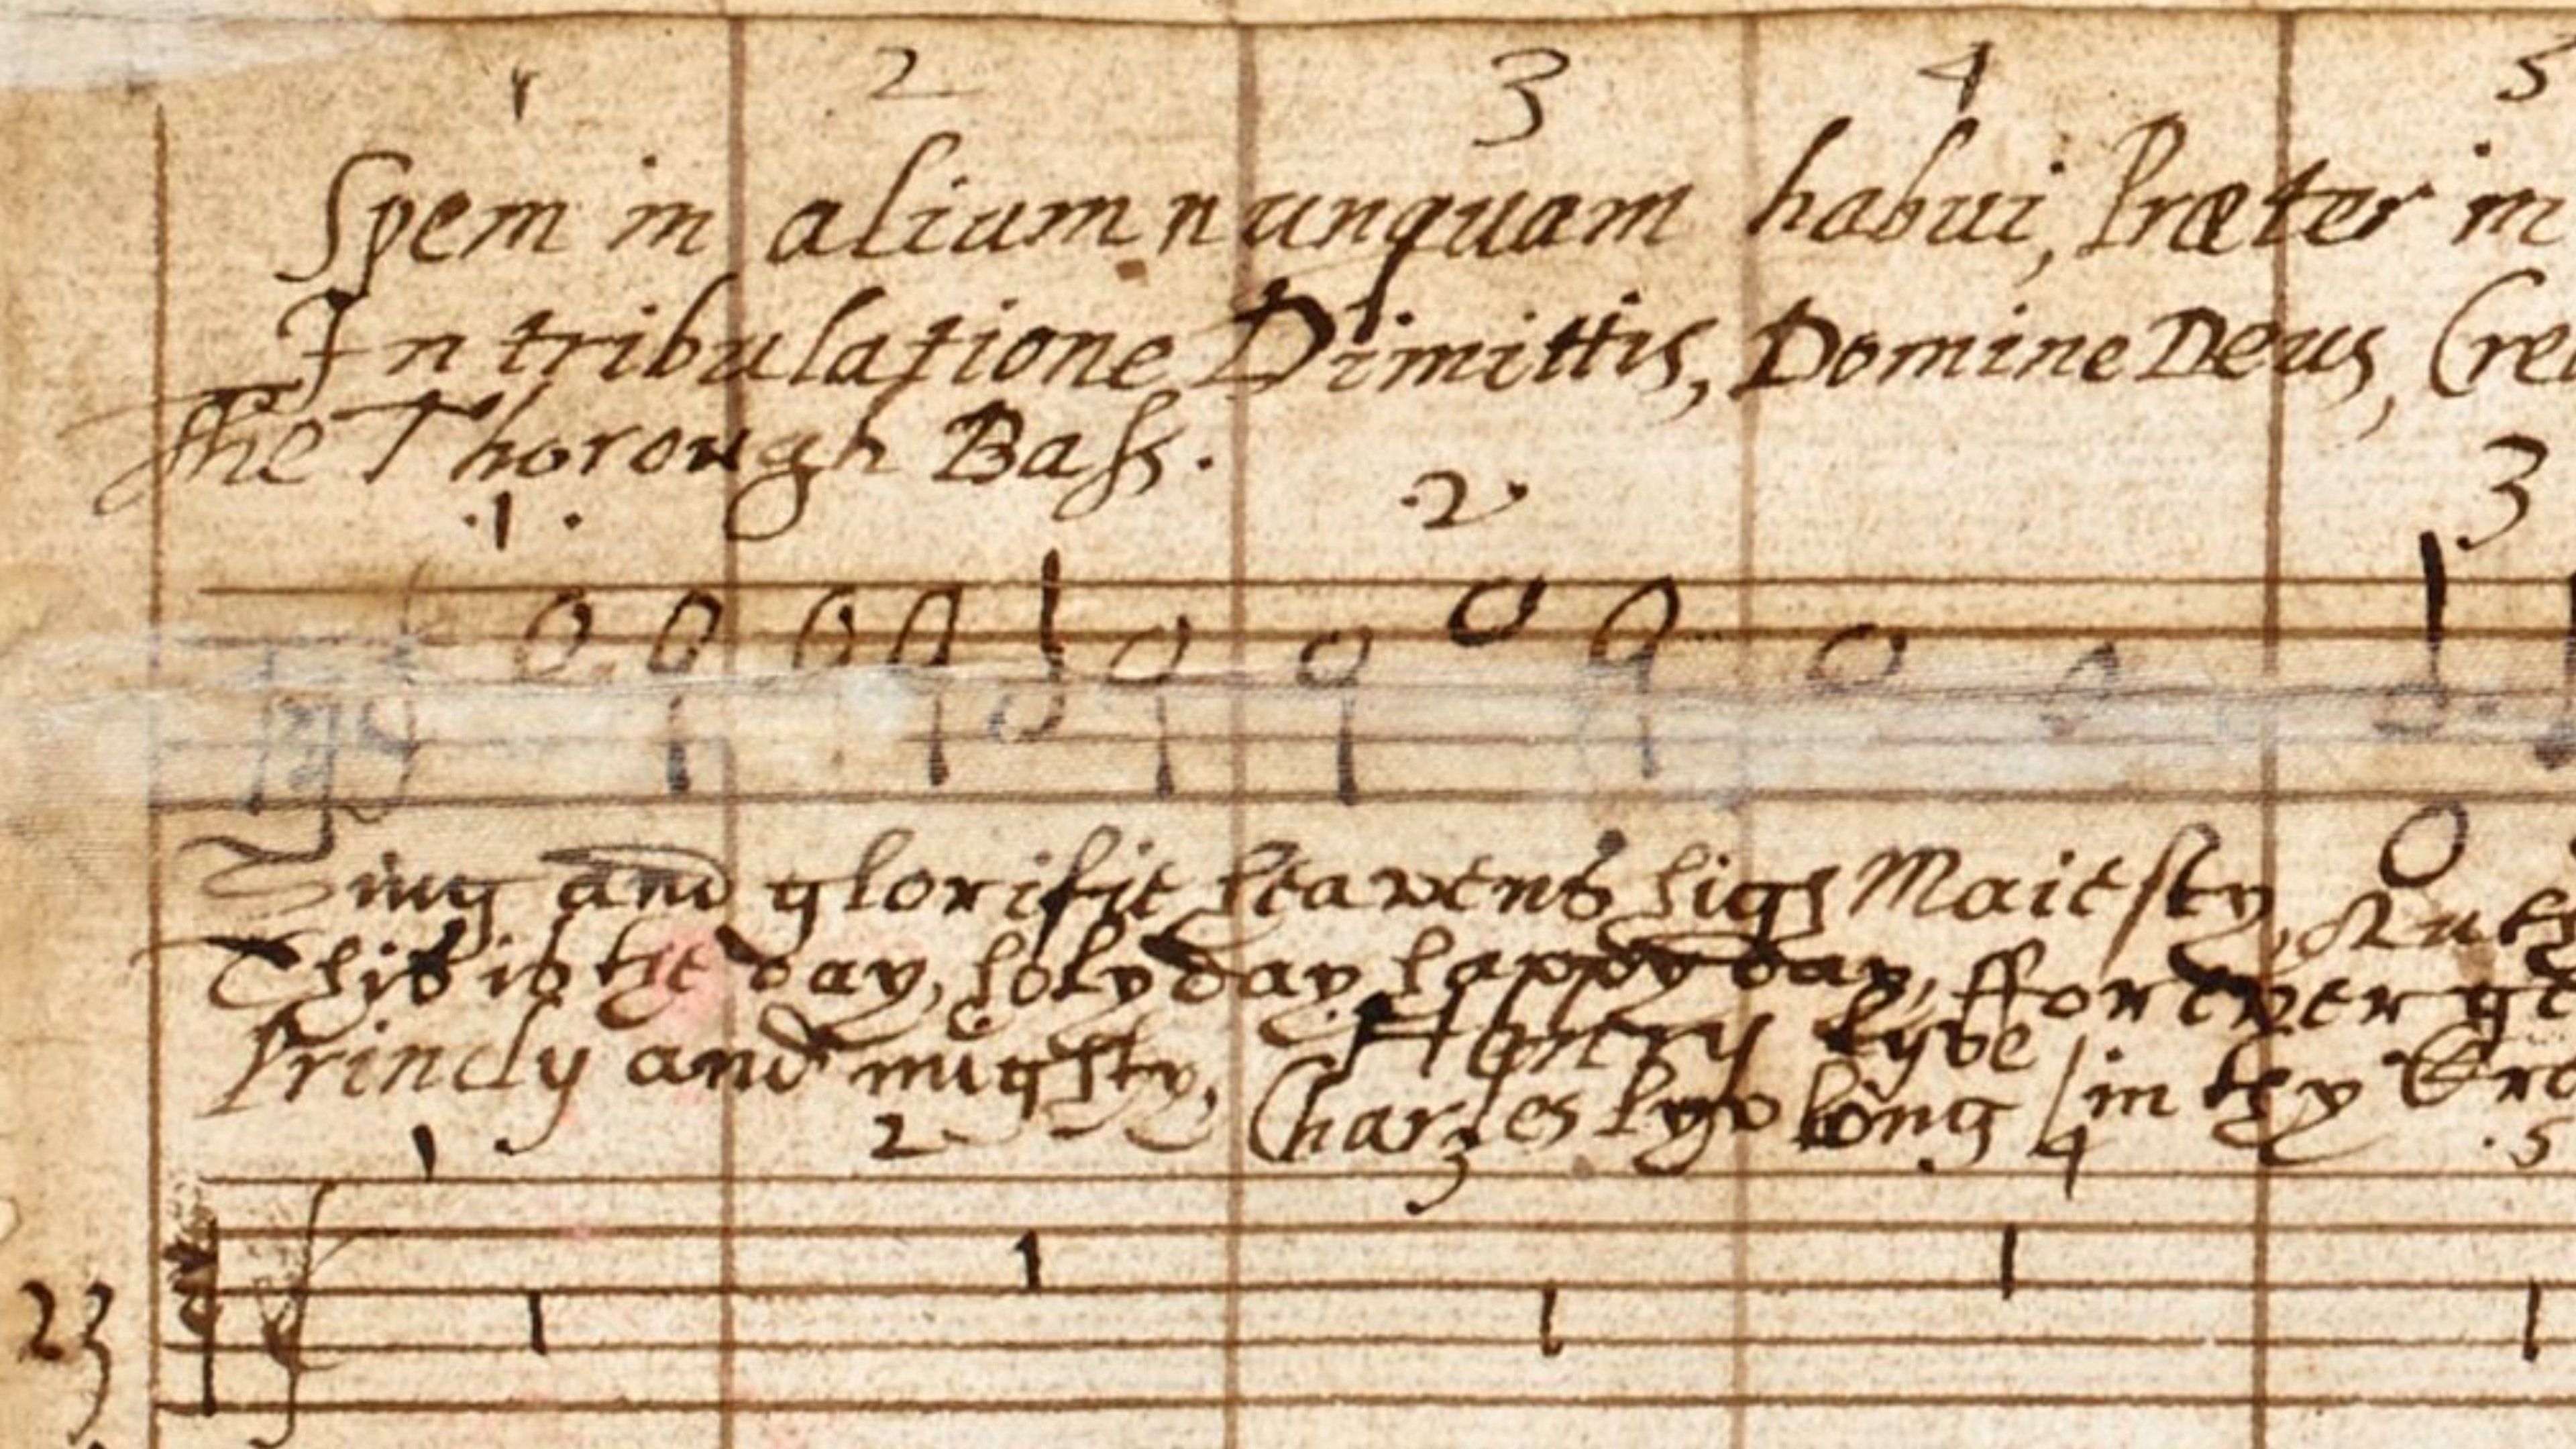 1 2 3 4 5
Spem in alium nunquam habui, Præter in
In tribulatione Dimittis, Domine Deus, Cre
The Thorough Bass.
.1. .2. 3
Sing and glorifie heavens high Maiesty, Auth
This is the day, holy day happy day, ffor ever gr
Princly and mighty, Henry lyve
Charles lyve long in thy Cre
1 2 3 4 .5
23